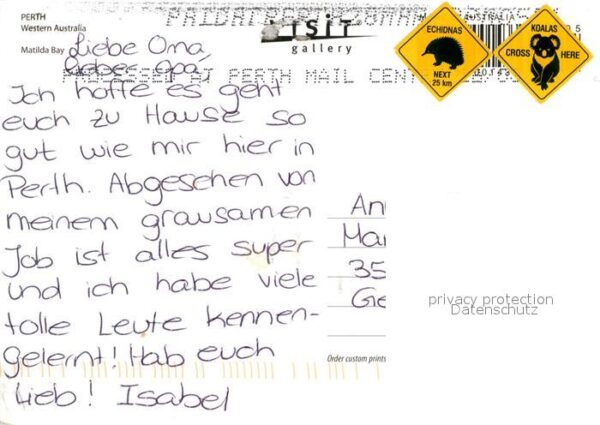 PERTH
Western Australia
Matilda Bay
VISIT
gallery
AUSTRALIA
ECHIDNAS
NEXT
25 km
KOALAS
CROSS HERE
Liebe Oma
liebes opa
PERTH MAIL
Ich hoffe es geht
euch zu Hause so
gut wie mir hier in
Perth. Abgesehen von
meinem grausamen
Job ist alles super
und ich habe viele
tolle Leute kennen-
gelernt! Hab euch
Lieb! Isabel
An
Mar
35
Ge
privacy protection
Datenschutz
Order custom prints